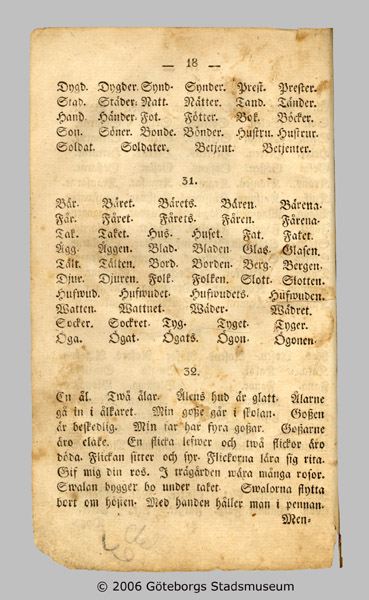 — 18 —
Dygd. Dygder. Synd. Synder. Prest. Prester.
Stad. Städer. Natt. Nätter. Tand. Tänder.
Hand. Händer. Fot. Fötter. Bok. Böcker.
Son. Söner. Bonde. Bönder. Hustru. Hustrur.
Soldat. Soldater. Betjent. Betjenter.
31.
Bär. Bäret. Bärets. Bären. Bärena.
Får. Fåret. Fårets. Fåren. Fårena.
Tak. Taket. Hus. Huset. Fat. Fatet.
Ägg. Äggen. Blad. Bladen. Glas. Glasen.
Tält. Tälten. Bord. Borden. Berg. Bergen.
Djur. Djuren. Folk. Folken. Slott. Slotten.
Hufwud. Hufwudet. Hufwudets. Hufwuden.
Watten. Wattnet. Wäder. Wädret.
Socker. Sockret. Tyg. Tyget. Tyger.
Öga. Ögat. Ögats. Ögon. Ögonen.
32.
En ål. Twå ålar. Ålens hud är glatt. Ålarne
gå in i ålkaret. Min gosse går i skolan. Gossen
är beskedlig. Min far har fyra gossar. Gossarne
äro elake. En flicka lefwer och twå flickor äro
döda. Flickan sitter och syr. Flickorna lära sig rita.
Gif mig din ros. I trägården wära många rosor.
Swalan bygger bo under taket. Swalorna flytta
bort om hösten. Med handen håller man i pennan.
Men-
© 2006 Göteborgs Stadsmuseum